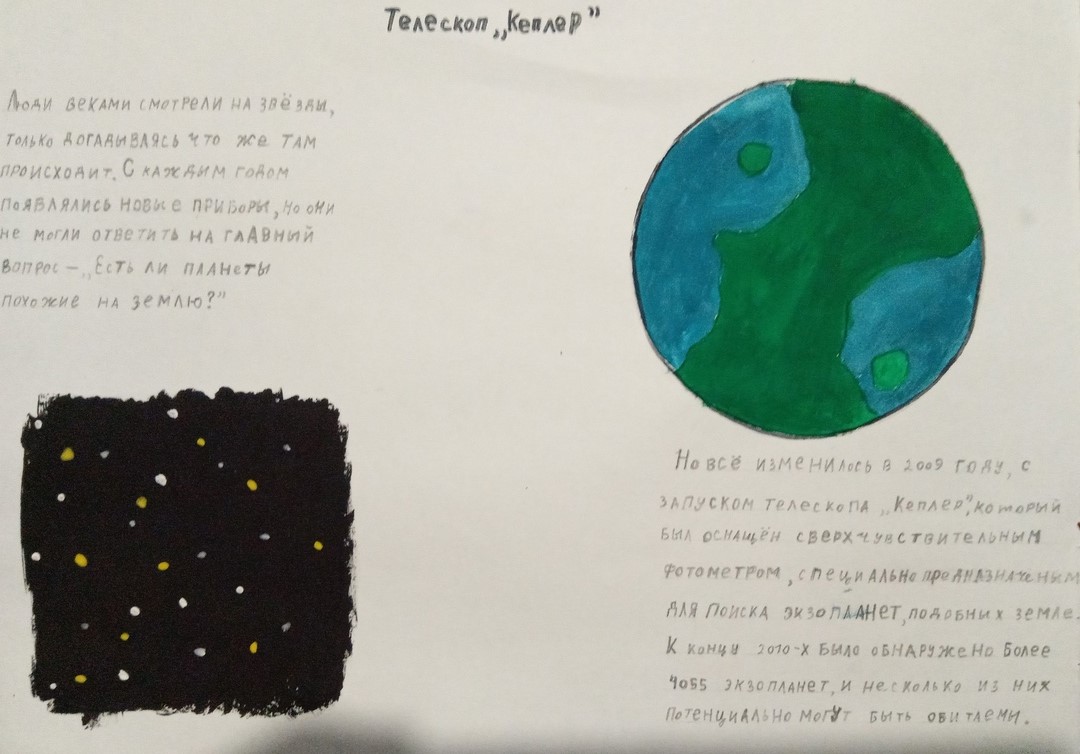 Телескоп „Кеплер”
Люди веками смотрели на звёзды,
только догадываясь что же там
происходит. С каждым годом
появлялись новые приборы, но они
не могли ответить на главный
вопрос – „Есть ли планеты
похожие на землю?”
Но всё изменилось в 2009 году, с
запуском телескопа „Кеплер”, который
был оснащён сверхчувствительным
фотометром, специально предназначеным
для поиска экзопланет, подобных земле.
К концу 2010-х было обнаружено более
4055 экзопланет, и несколько из них
потенциально могут быть обитлеми.